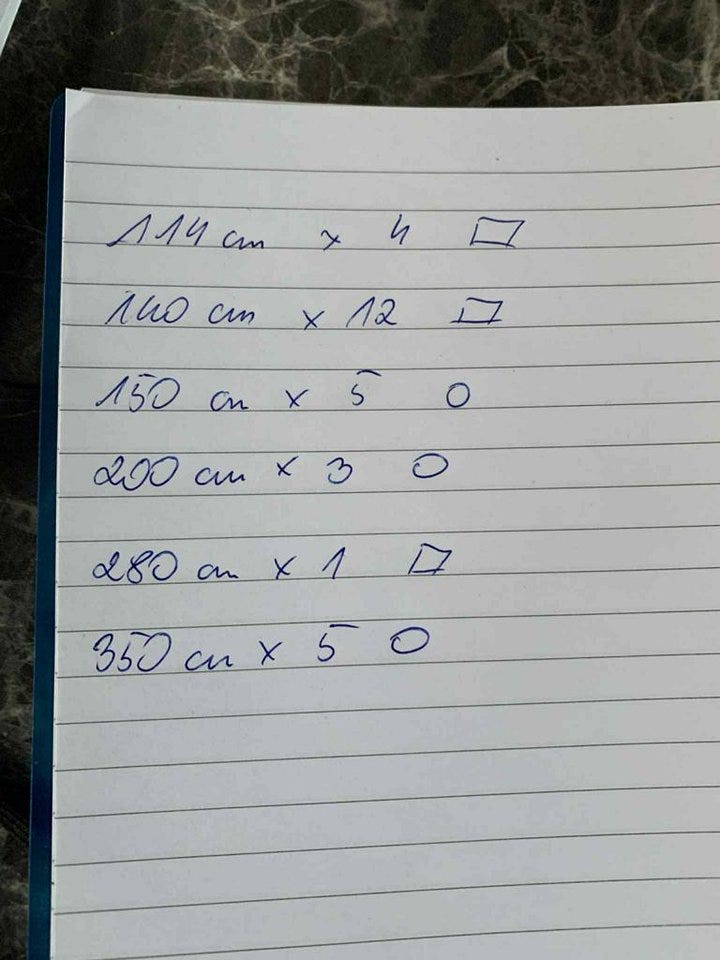 114 cm x 4 ▱
140 cm x 12 ▱
150 cm x 5 O
200 cm x 3 O
280 cm x 1 ▱
350 cm x 5 O